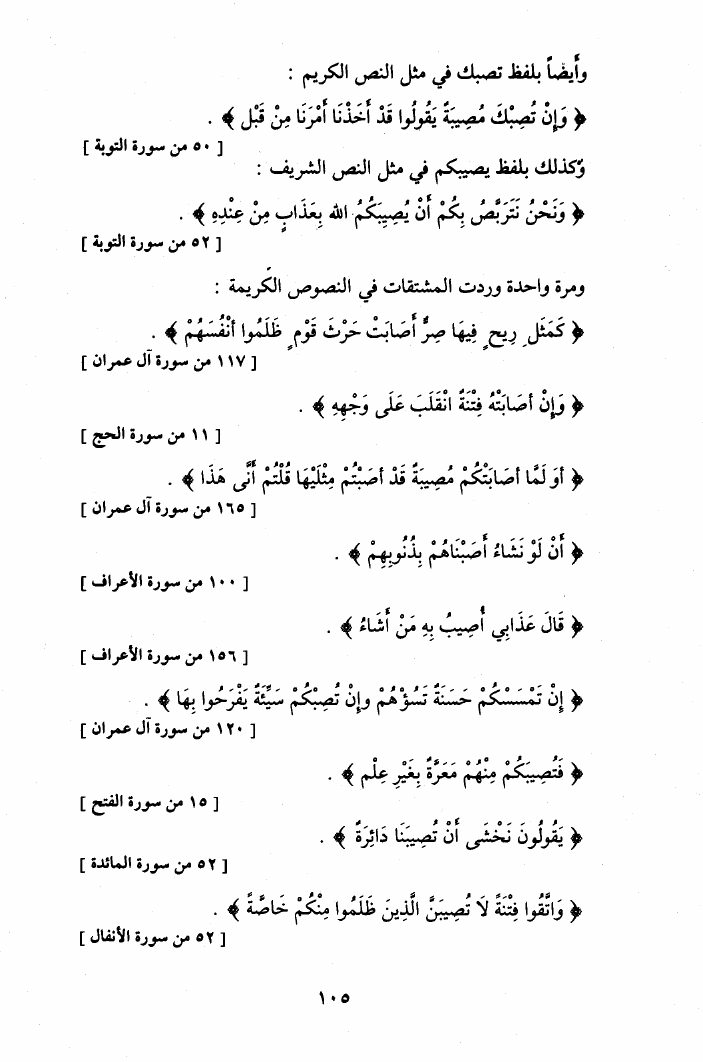 وأيضاً بلفظ تصبك في مثل النص الكريم :
﴿ وَإِنْ تُصِبْكَ مُصِيبَةٌ يَقُولُوا قَدْ أَخَذْنَا أَمْرَنَا مِنْ قَبْل ﴾ .
[ ٥٠ من سورة التوبة ]
وكذلك بلفظ يصيبكم في مثل النص الشريف :
﴿ وَنَحْنُ نَتَرَبَّصُ بِكُمْ أَنْ يُصِيبَكُمُ الله بِعَذَابٍ مِنْ عِنْدِهِ ﴾ .
[ ٥٢ من سورة التوبة ]
ومرة واحدة وردت المشتقات في النصوص الكريمة :
﴿ كَمَثَلِ رِيحٍ فِيهَا صِرٌّ أَصَابَتْ حَرْثَ قَوْمٍ ظَلَمُوا أَنْفُسَهُمْ ﴾ .
[ ١١٧ من سورة آل عمران ]
﴿ وَإِنْ أصَابَتْهُ فِتْنَةٌ انْقَلَبَ عَلَى وَجْهِهِ ﴾ .
[ ١١ من سورة الحج ]
﴿ أوَ لَمَّا أصَابَتْكُمْ مُصِيبَةٌ قَدْ أصَبْتُمْ مِثْلَيْهَا قُلْتُمْ أَنَّى هَذَا ﴾ .
[ ١٦٥ من سورة آل عمران ]
﴿ أَنْ لَوْ نَشَاءُ أَصَبْنَاهُمْ بِذُنُوبِهِمْ ﴾ .
[ ١٠٠ من سورة الأعراف ]
﴿ قَالَ عَذَابِي أُصِيبُ بِهِ مَنْ أَشَاءُ ﴾ .
[ ١٥٦ من سورة الأعراف ]
﴿ إِنْ تَمْسَسْكُمْ حَسَنَةٌ تَسُؤْهُمْ وإِنْ تُصِبْكُمْ سَيِّئَةٌ يَفْرَحُوا بِهَا ﴾ .
[ ١٢٠ من سورة آل عمران ]
﴿ فَتُصِيبَكُمْ مِنْهُمْ مَعَرَّةٌ بِغَيْرِ عِلْم ﴾ .
[ ١٥ من سورة الفتح ]
﴿ يَقُولُونَ نَخْشَى أَنْ تُصِيبَنَا دَائِرَةٌ ﴾ .
[ ٥٢ من سورة المائدة ]
﴿ وَاتَّقُوا فِتْنَةً لاَ تُصِيبَنَّ الَّذِينَ ظَلَمُوا مِنْكُمْ خَاصَّةً ﴾ .
[ ٥٢ من سورة الأنفال ]
١٠٥